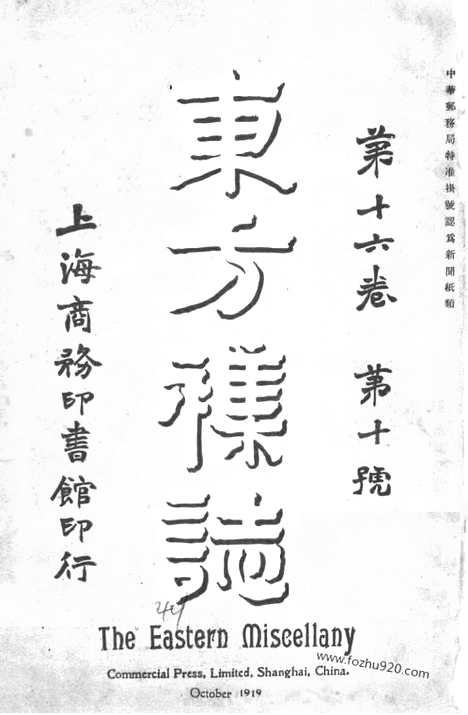 中華郵務局特准掛號認爲新聞紙類
第十六卷 第十號
東方襍誌
上海商務印書館印行
49
The Eastern Miscellany
Commercial Press, Limited, Shanghai, China.
October 1919
www.fozhu920.com